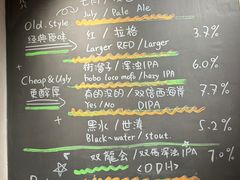 July / Pale Ale
Old.style
经典原味
红 / 拉格
Larger RED / Larger
3.7%
街溜子 / 浑浊IPA
hobo loco mofo / hazy IPA
6.0%
Cheap & Ugly
更醇厚
有的没的 / 双倍西海岸
Yes / No DIPA
7.7%
黑水 / 世涛
Black~water / stout.
5.2%
双龍会 / 双倍浑浊IPA
<DDH>
7.0%